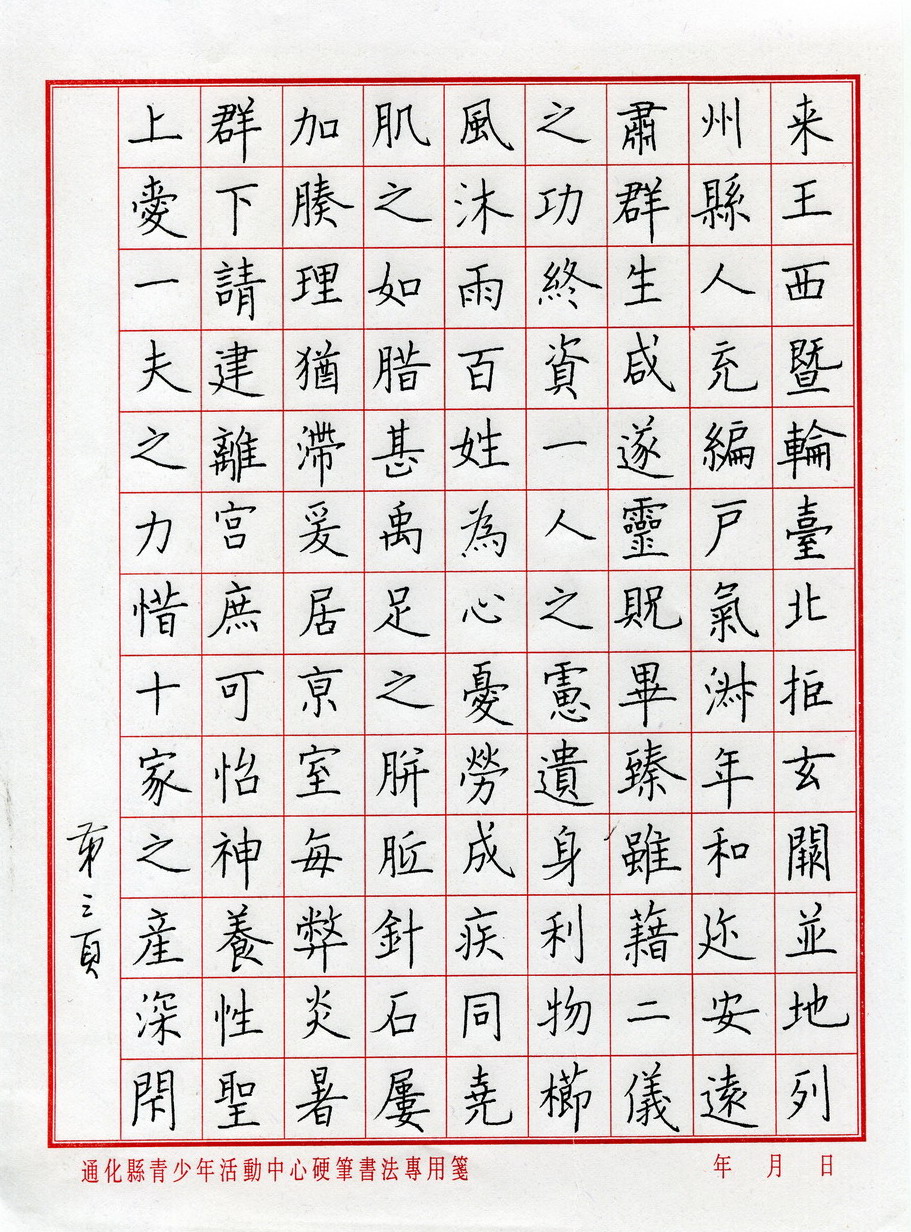 来王西暨輪臺北拒玄闕並地列
州縣人充編戶氣淋年和迩安遠
肅群生咸遂靈貺畢臻雖藉二儀
之功終資一人之慮遺身利物櫛
風沐雨百姓為心憂勞成疾同堯
肌之如腊甚禹足之胼胝針石屡
加腠理猶滯爰居京室每弊炎暑
群下請建離宮庶可怡神養性聖
上愛一夫之力惜十家之産深閇
第三頁
通化縣青少年活動中心硬筆書法專用箋
年 月 日